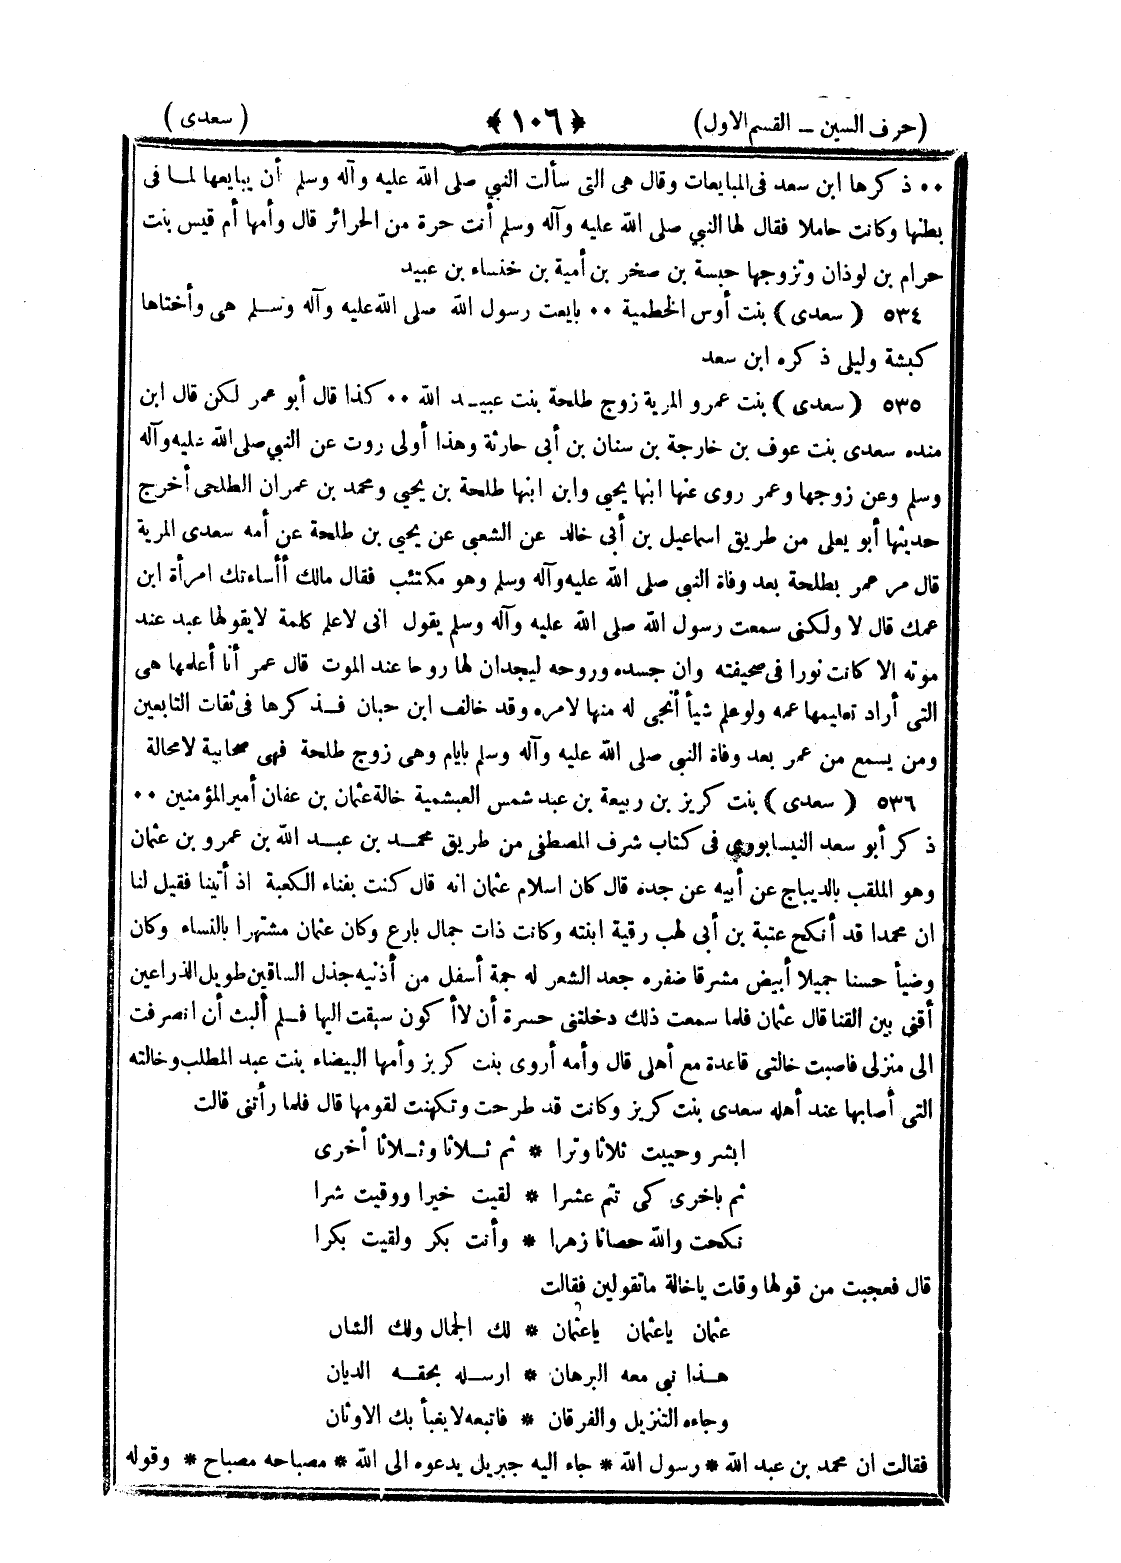 (حرف السين ــ القسم الاول) ﴿ ١٠٦ ﴾ ( سعدى )
٠٠ ذكرها ابن سعد فى المبايعات وقال هى التى سألت النبي صلى الله عليه وآله وسلم أن يبايعها لما فى
بطنها وكانت حاملا فقال لها النبي صلى الله عليه وآله وسلم أنت حرة من الحرائر قال وأمها أم قيس بنت
حرام بن لوذان وتزوجها حبسة بن صخر بن أمية بن خنساء بن عبيد
٥٣٤ ( سعدى ) بنت أوس الخطمية ٠٠ بايعت رسول الله صلى الله عليه وآله وسلم هى وأختاها
كبشة وليلى ذكره ابن سعد
٥٣٥ ( سعدى ) بنت عمرو المرية زوج طلحة بنت عبيد الله ٠٠ كذا قال أبو عمر لكن قال ابن
منده سعدى بنت عوف بن خارجة بن سنان بن أبى حارثة وهذا أولى روت عن النبي صلى الله عليه وآله
وسلم وعن زوجها وعمر روى عنها ابنها يحيي وابن ابنها طلحة بن يحيي ومحمد بن عمران الطلحى أخرج
حديثها أبو يعلى من طريق اسماعيل بن أبى خالد عن الشعبى عن يحيي بن طلحة عن أمه سعدى المرية
قال مر عمر بطلحة بعد وفاة النبي صلى الله عليه وآله وسلم وهو مكتئب فقال مالك أأساءتك امرأة ابن
عمك قال لا ولكنى سمعت رسول الله صلى الله عليه وآله وسلم يقول انى لاعلم كلمة لايقولها عبد عند
موته الا كانت نورا فى صحيفته وان جسده وروحه ليجدان لها روحا عند الموت قال عمر أنا أعلمها هى
التى أراد تعليمها عمه ولو علم شيأ أنجى له منها لامره وقد خالف ابن حبان فذكرها فى ثقات التابعين
ومن يسمع من عمر بعد وفاة النبي صلى الله عليه وآله وسلم بايام وهى زوج طلحة فهى صحابية لامحالة
٥٣٦ ( سعدى ) بنت كريز بن ربيعة بن عبد شمس العبشمية خالة عثمان بن عفان أمير المؤمنين ٠٠
ذكر أبو سعد النيسابورى فى كتاب شرف المصطفى من طريق محمد بن عبد الله بن عمرو بن عثمان
وهو الملقب بالديباج عن أبيه عن جده قال كان اسلام عثمان انه قال كنت بفناء الكعبة اذ أتينا فقيل لنا
ان محمدا قد أنكح عتبة بن أبى لهب رقية ابنته وكانت ذات جمال بارع وكان عثمان مشتهرا بالنساء وكان
وضيأ حسنا جميلا أبيض مشرقا ضفره جعد الشعر له جمة أسفل من أذنيه جذل الساقين طويل الذراعين
أقنى بين القنا قال عثمان فلما سمعت ذلك دخلتنى حسرة أن لاأكون سبقت اليها فلم ألبث أن انصرفت
الى منزلى فاصبت خالتى قاعدة مع أهلى قال وأمه أروى بنت كريز وأمها البيضاء بنت عبد المطلب وخالته
التى أصابها عند أهله سعدى بنت كريز وكانت قد طرحت وتكهنت لقومها قال فلما رأتنى قالت
ابشر وحييت ثلاثا وترا * ثم ثلاثا وثلاثا أخرى
ثم باخرى كى تتم عشرا * لقيت خيرا ووقيت شرا
نكحت والله حصانا زهرا * وأنت بكر ولقيت بكرا
قال فعجبت من قولها وقلت ياخالة ماتقولين فقالت
عثمان ياعثمان ياعثمان * لك الجمال ولك الشان
هذا نبي معه البرهان * ارسله بحقه الديان
وجاءه التنزيل والفرقان * فاتبعه لايغبأ بك الاوثان
فقالت ان محمد بن عبد الله * رسول الله * جاء اليه جبريل يدعوه الى الله * مصباحه مصباح * وقوله